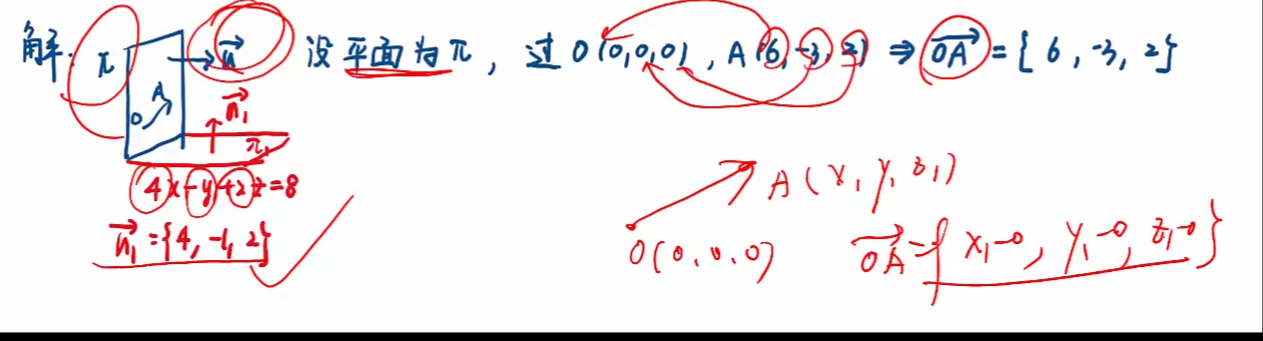 解: π n⃗ 设平面为π, 过O(0,0,0), A(6,-3,2) ⇒ OA⃗ = {6, -3, 2}
A
O n⃗₁
π₁
4x-y+2z=8
n⃗₁={4,-1,2}
A(x₁ y₁ z₁)
O(0,0,0) OA⃗={x₁-0, y₁-0, z₁-0}